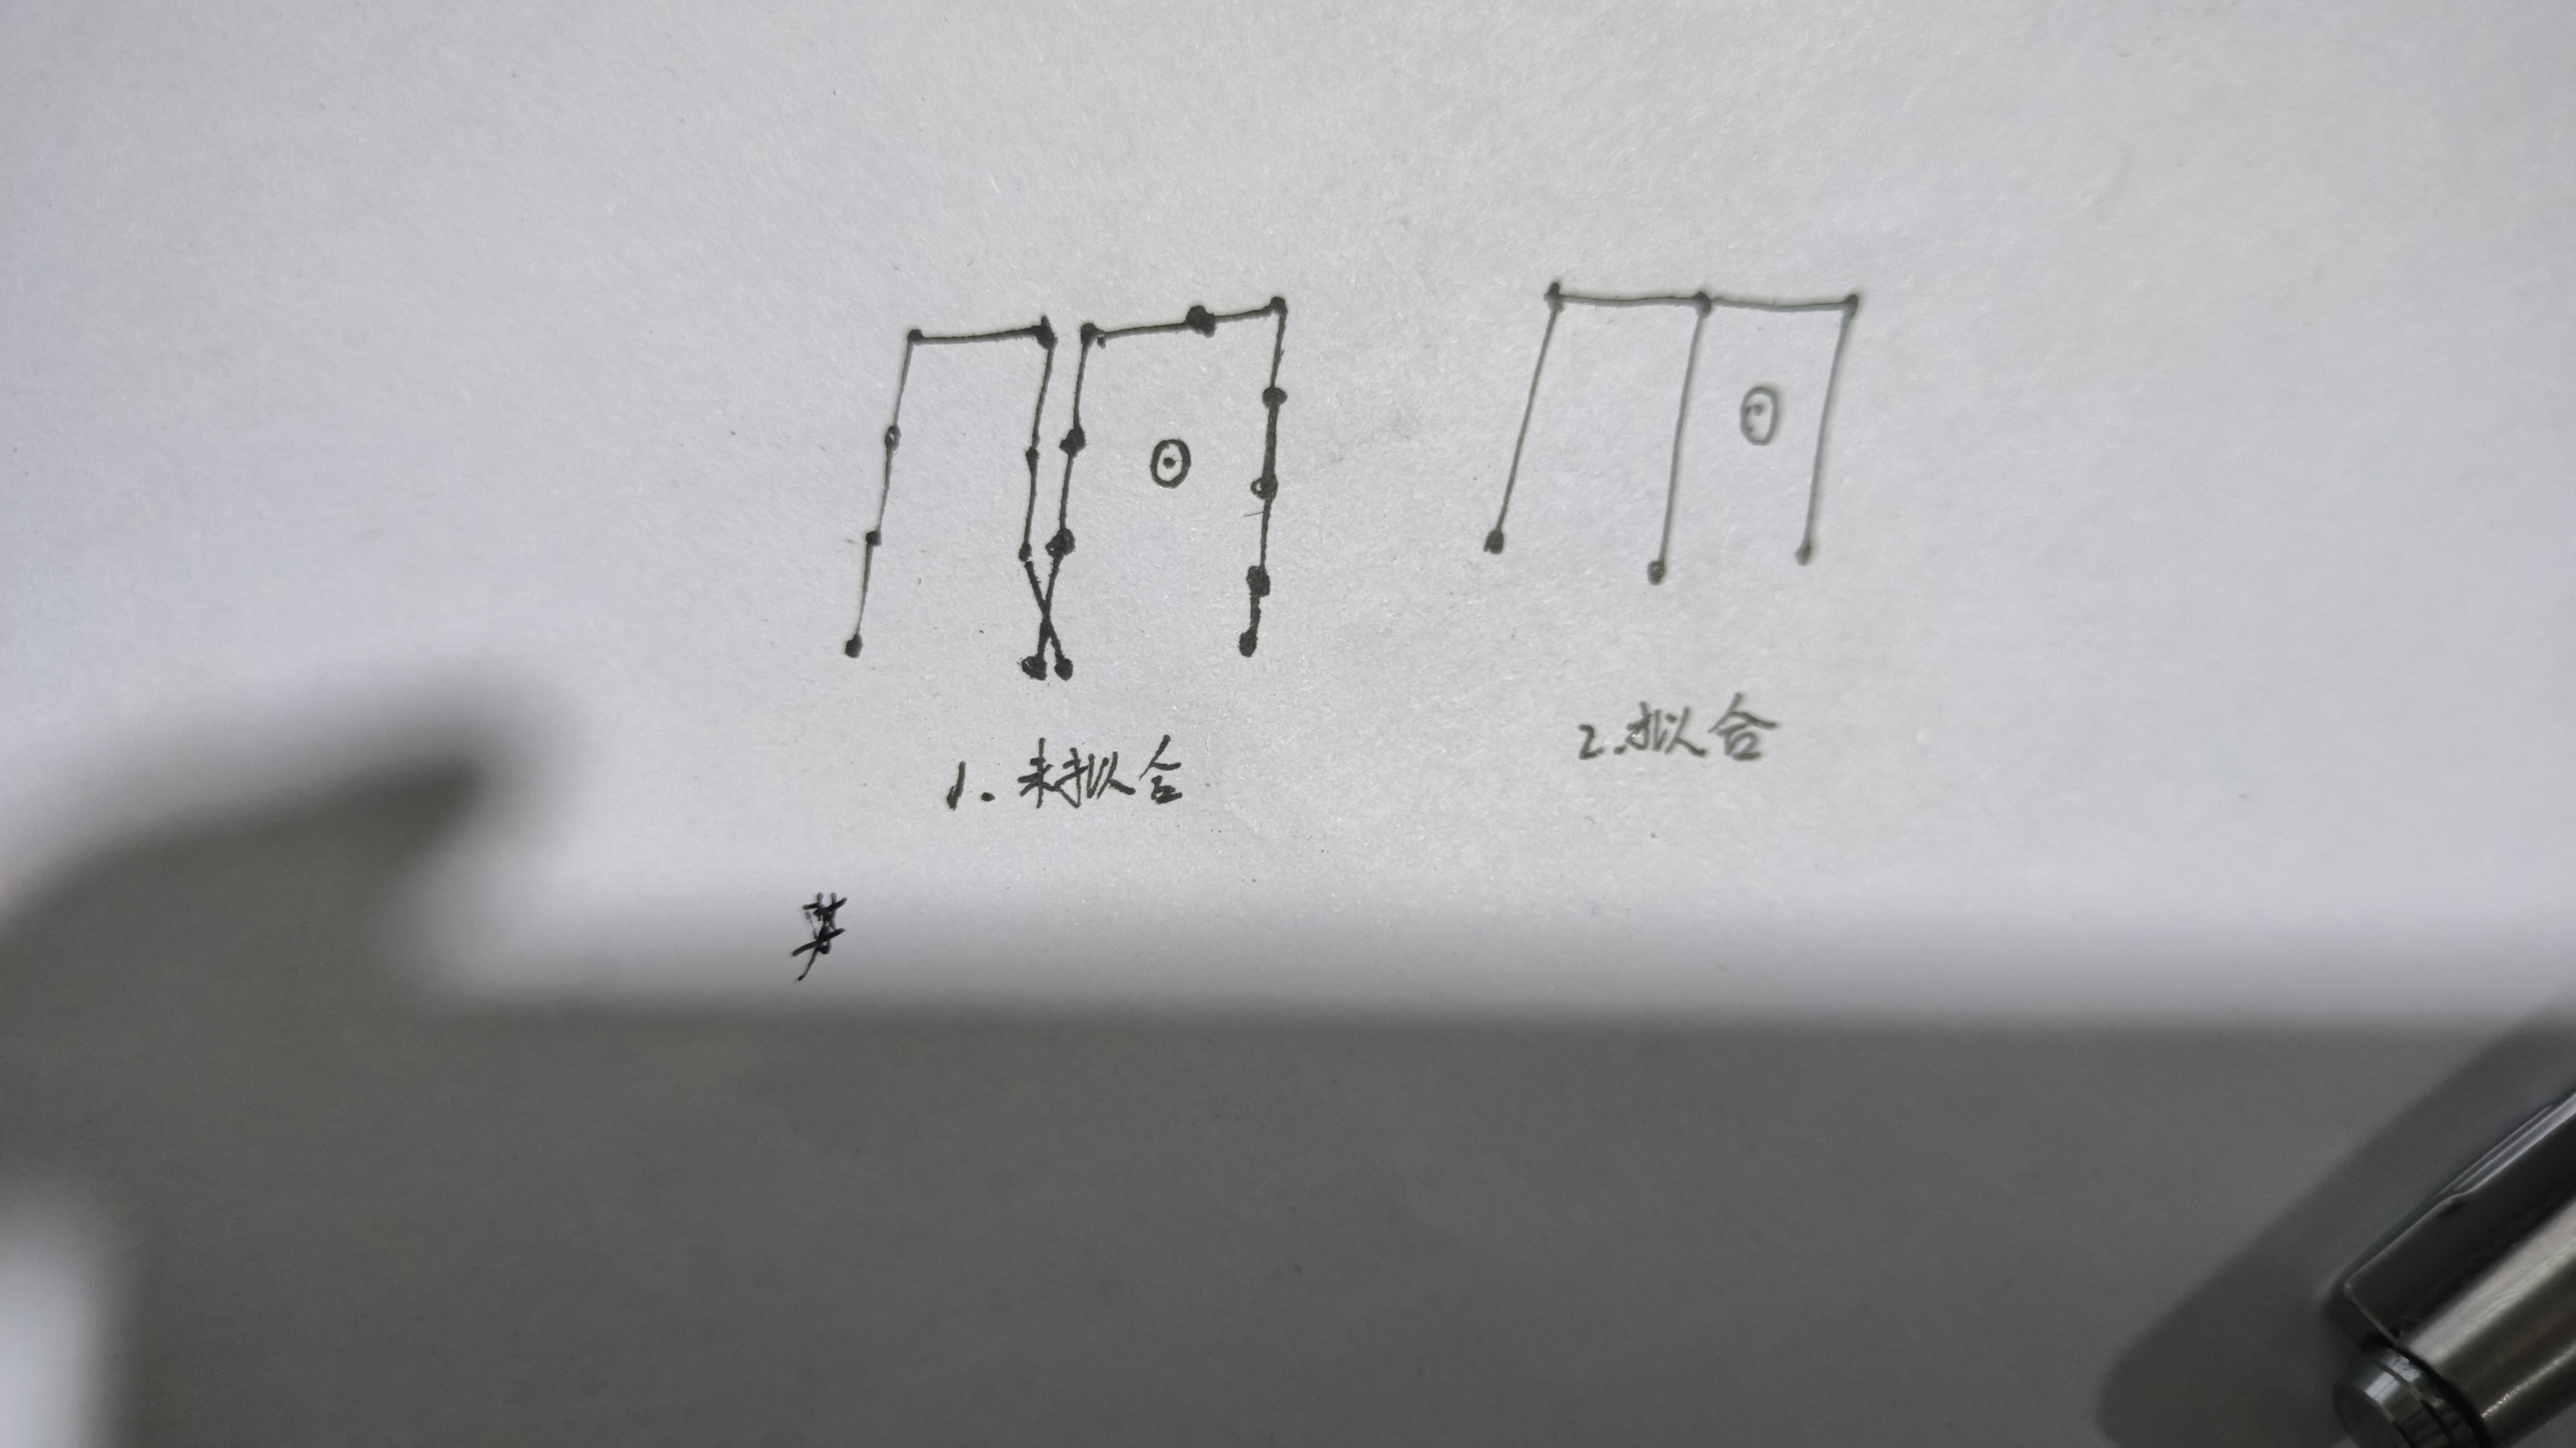 1. 未拟合
2. 拟合